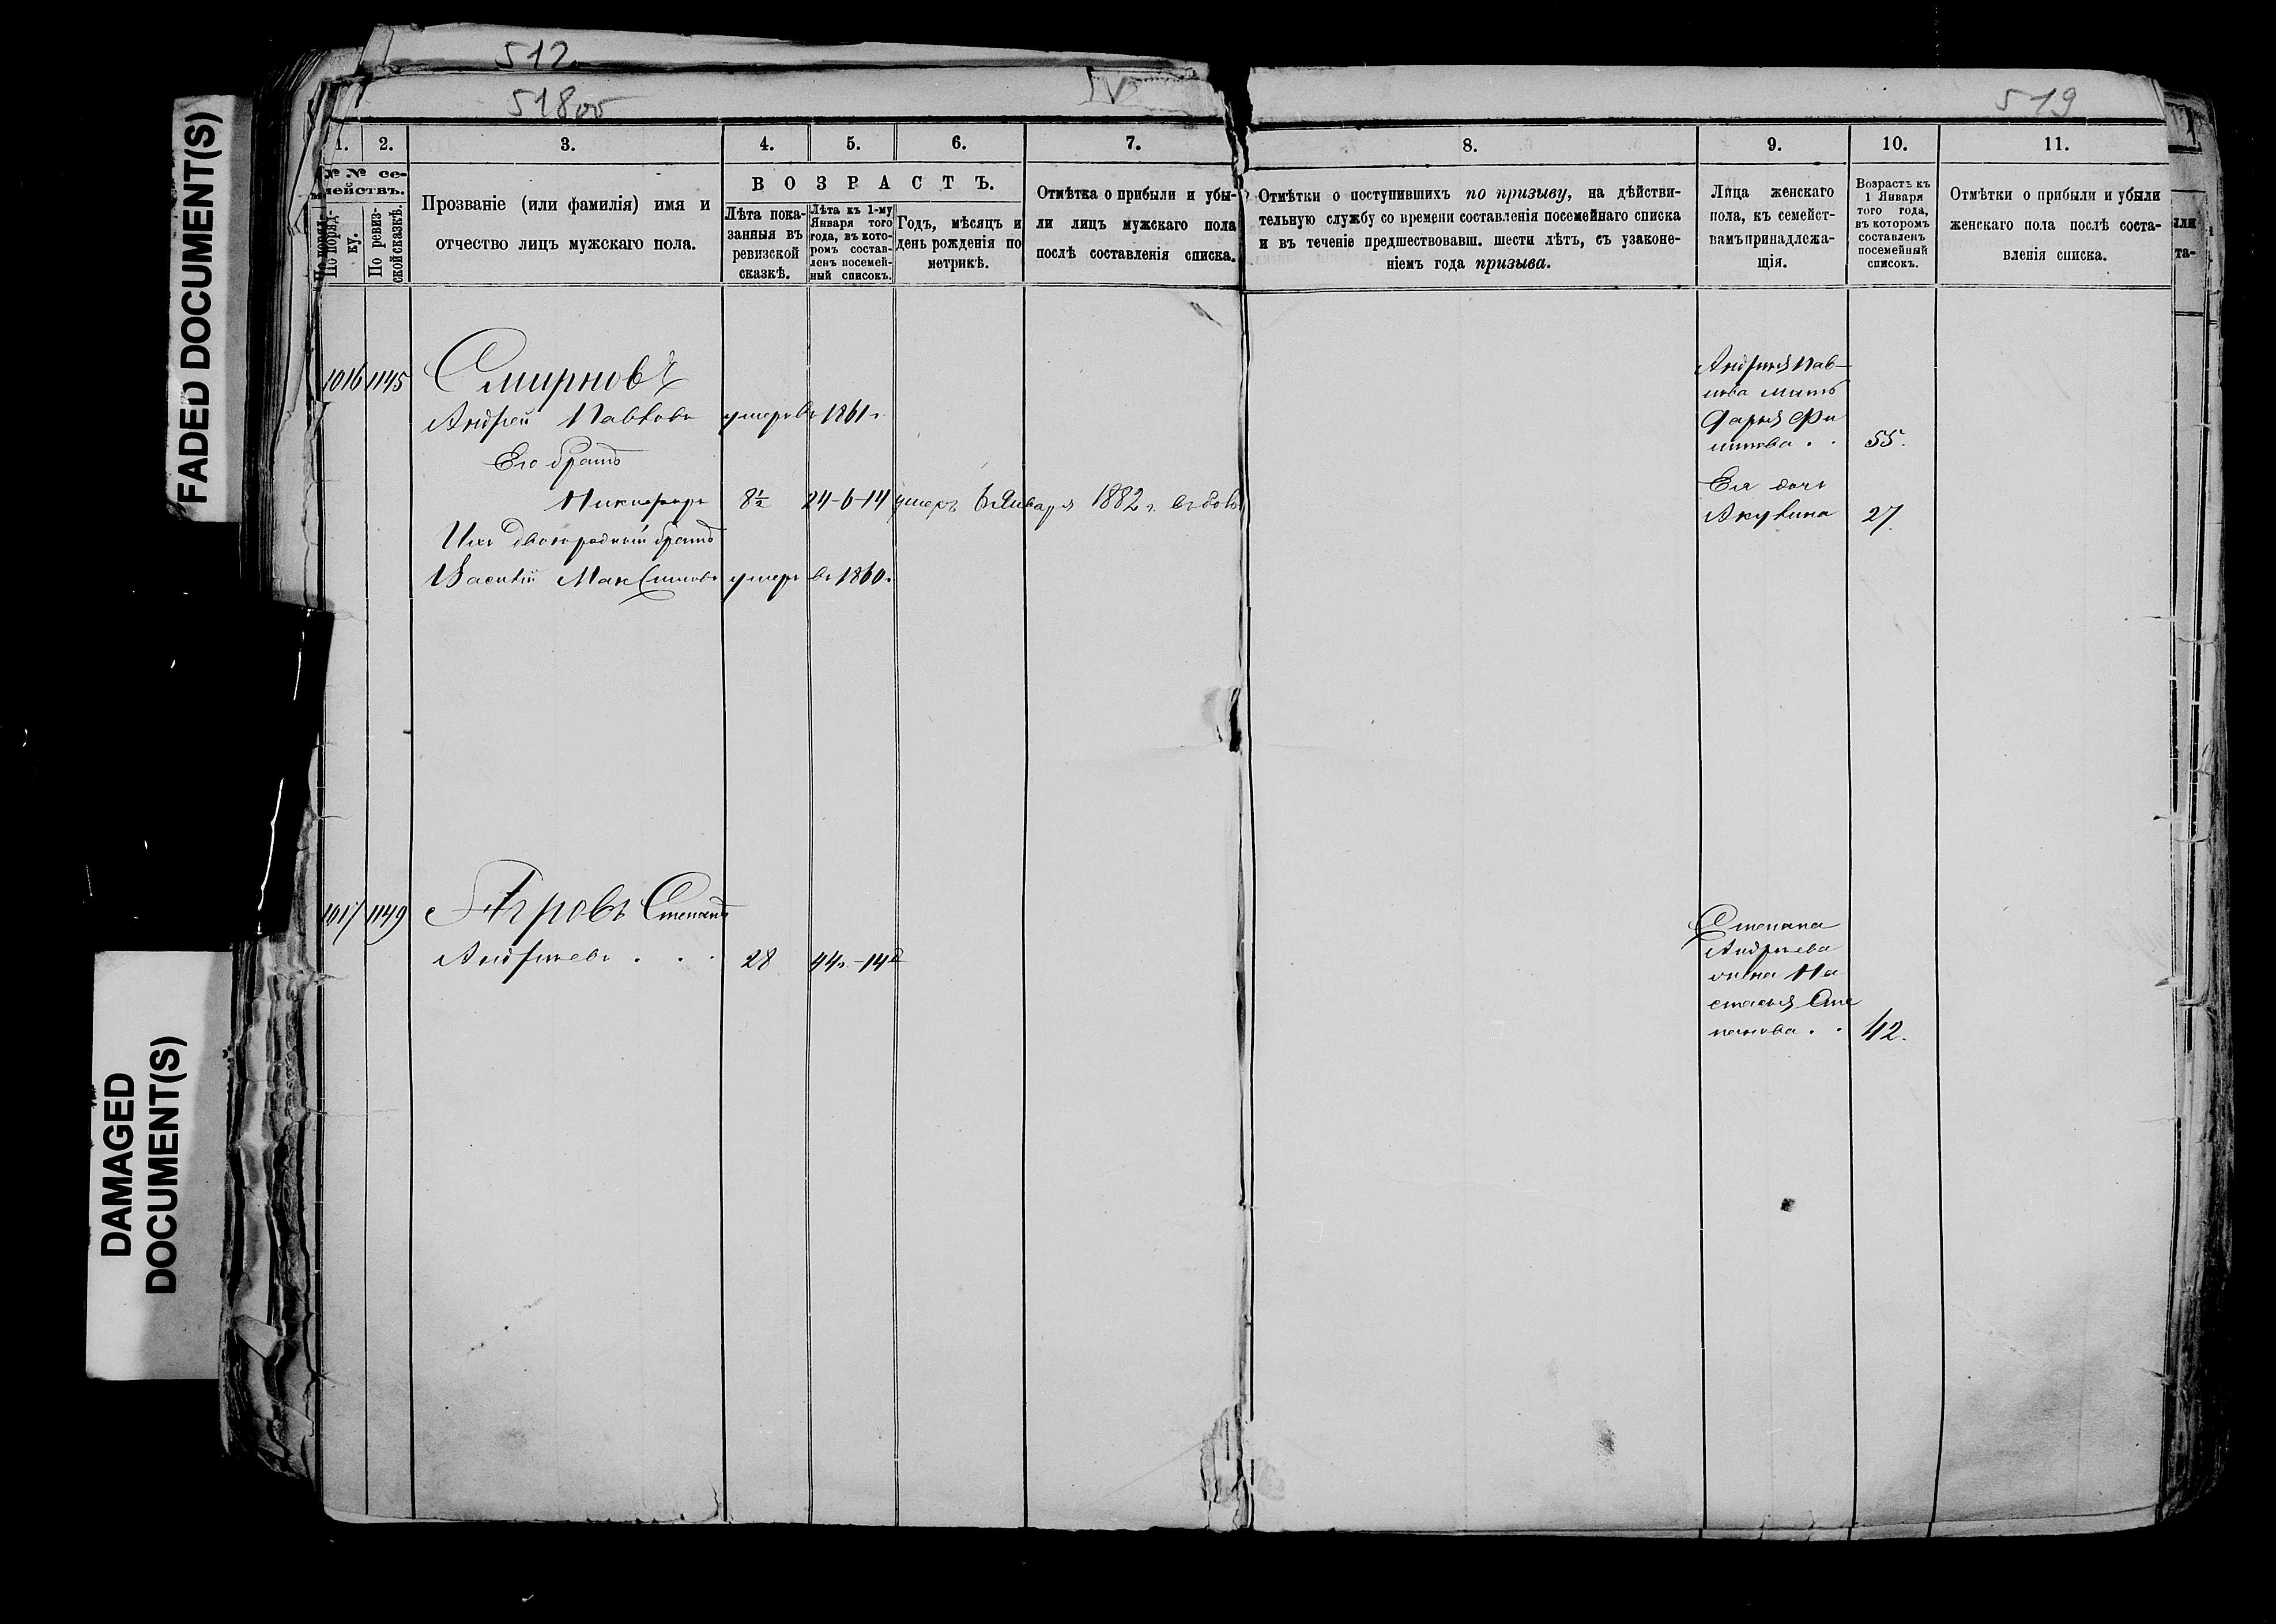 FADED DOCUMENT(S)
DAMAGED
DOCUMENT(S)
512
518об
519
1.
2.
3.
4.
5.
6.
7.
8.
9.
10.
11.
№ № се-
мействъ.
По поряд-
ку.
По ревиз-
ской сказкѣ.
Прозваніе (или фамилія) имя и
отчество лицъ мужскаго пола.
ВОЗРАСТЪ.
Лѣта пока-
занныя въ
ревизской
сказкѣ.
Лѣта къ 1-му
Января того
года, въ кото-
ромъ состав-
ленъ посемей-
ный списокъ.
Годъ, мѣсяцъ и
день рожденія по
метрикѣ.
Отмѣтка о прибыли и убы-
ли лицъ мужскаго пола
послѣ составленія списка.
Отмѣтки о поступившихъ по призыву, на дѣйстви-
тельную службу со времени составленія посемейнаго списка
и въ теченіе предшествовавш. шести лѣтъ, съ узаконе-
ніемъ года призыва.
Лица женскаго
пола, къ семейст-
вамъ принадлежа-
щія.
Возрастъ къ
1 Января
того года,
въ которомъ
составленъ
посемейный
списокъ.
Отмѣтки о прибыли и убыли
женскаго пола послѣ соста-
вленія списка.
или
та-
1016 1145 Смирновъ
Андрей Павловъ умеръ въ 1861 г.
Его братъ
Никифоръ 8½ 24-6-14 умеръ 6 Января 1882 г.
Ихъ двоюродный братъ
Василій Максимовъ умеръ въ 1860 г.
Андрея Пав-
лова мать
Дарья Фи
липова . . 55.
Ея дочь
Акулина 27
1017 1149 Степанъ
Андреевъ . . . 28 44г.-14д
Степана
Андреева
жена На
стасья Сте
панова . . 42.